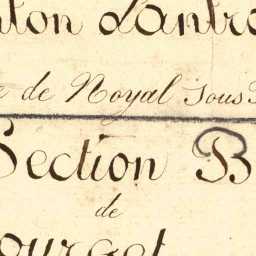 nton Lantra
de Royal Sous
Section B
de
ourget